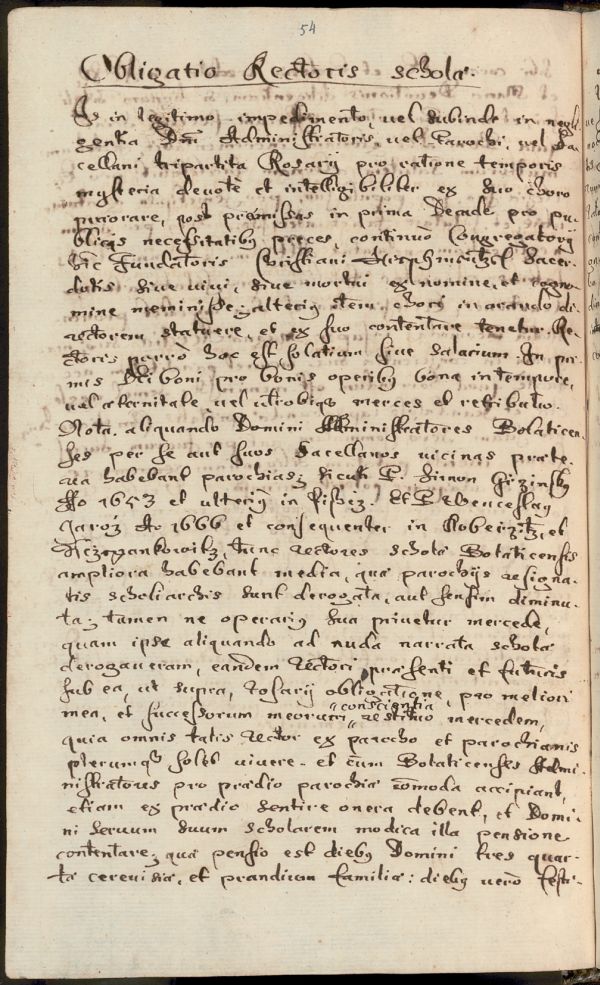 54
Obligatio Rectoris scholæ.
Is in legitimo impedimento, vel subinde in negli
gentia Dni Administratoris vel Parochi, vel Sa-
cellani, tripartita Rosarij pro ratione temporis
mysteria devotè et intelligibiliter ex suo choro
præorare, post præmissas in prima Decade pro pu-
blicis necessitatibus preces, continuò Congregatorij
hic Fundatoris Christiani sacer-
dotis sive vivi, sive mortui ex nomine, et cogno-
mine meminisse; alterius item chori in orando di-
rectorem statuere, et ex suo contentare tenetur. Re-
ctoris porrò hoc est solatium sive salarium. In pri-
mis Dei boni pro bonis operibus bona in tempore,
vel æternitate, vel utrobique merces et retributio.
Nota. aliquando Domini Administratores Bolaticen-
ses per se aut suos Sacellanos vicinas præte-
rea habebant parochias; sicuti P. Simon
Ao 1653 et ulterius in P. Wenceslaus
Ao 1666 et consequenter in et
tunc rectores scholæ Bolaticensis
ampliora habebant media, quæ parochijs resigna-
tis scholiarchis sunt derogata, aut sensim diminu-
ta; tamen ne operarius sua privetur mercede,
quam ipse aliquando ad nuda narrata scholæ
derogaveram, eandem rectori præsenti et futuris
sub ea, ut supra, rosarij obligatione, pro meliori
conscientia
mea, et successorum meorum restituo mercedem,
quia omnis talis rector ex parocho et parochianis
plerumque solet vivere. et cum Bolaticenses Admi-
nistratores pro prædio parochiæ comoda accipiant,
etiam ex prædio sentire onera debent, et Domi-
ni servum suum scholarem modica illa pensione
contentare; quæ pensio est diebus Domini tres quar-
tæ cerevisiæ, et prandium familiæ: diebus verò festi-